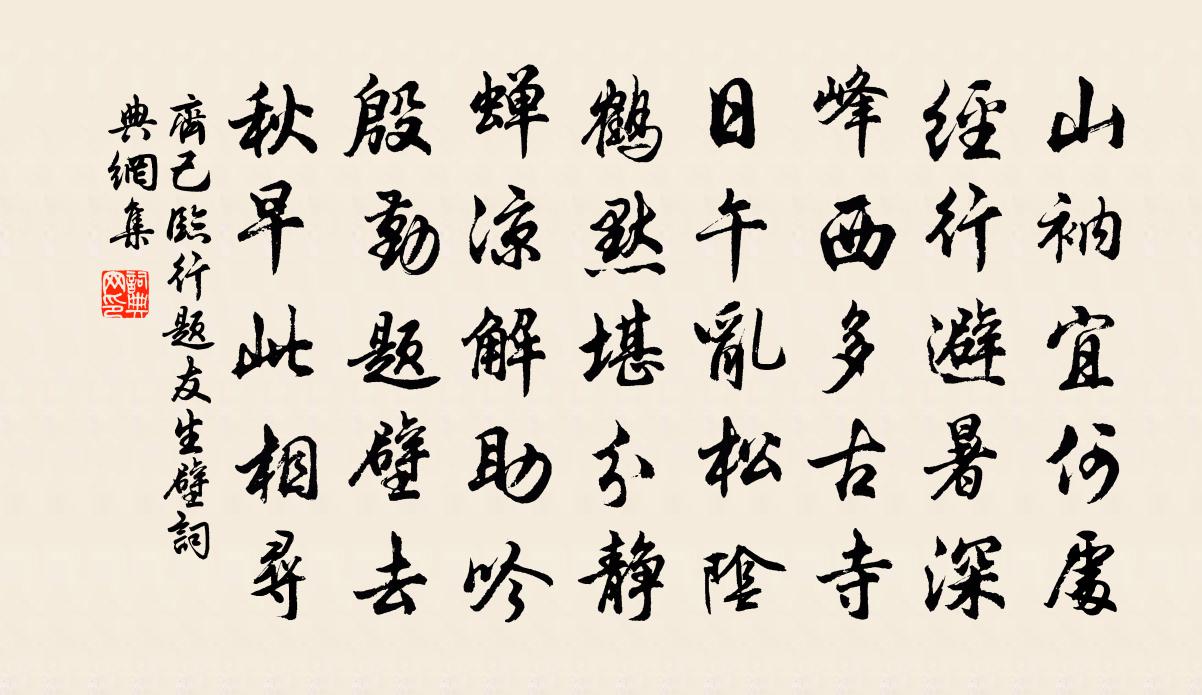 山衲宜何處
經行避暑深
峰西多古寺
日午亂松陰
鶴默堪分靜
蟬涼解助吟
殷勤題壁去
秋早此相尋
齊己臨行题友生壁詞
典網集
詞典網印